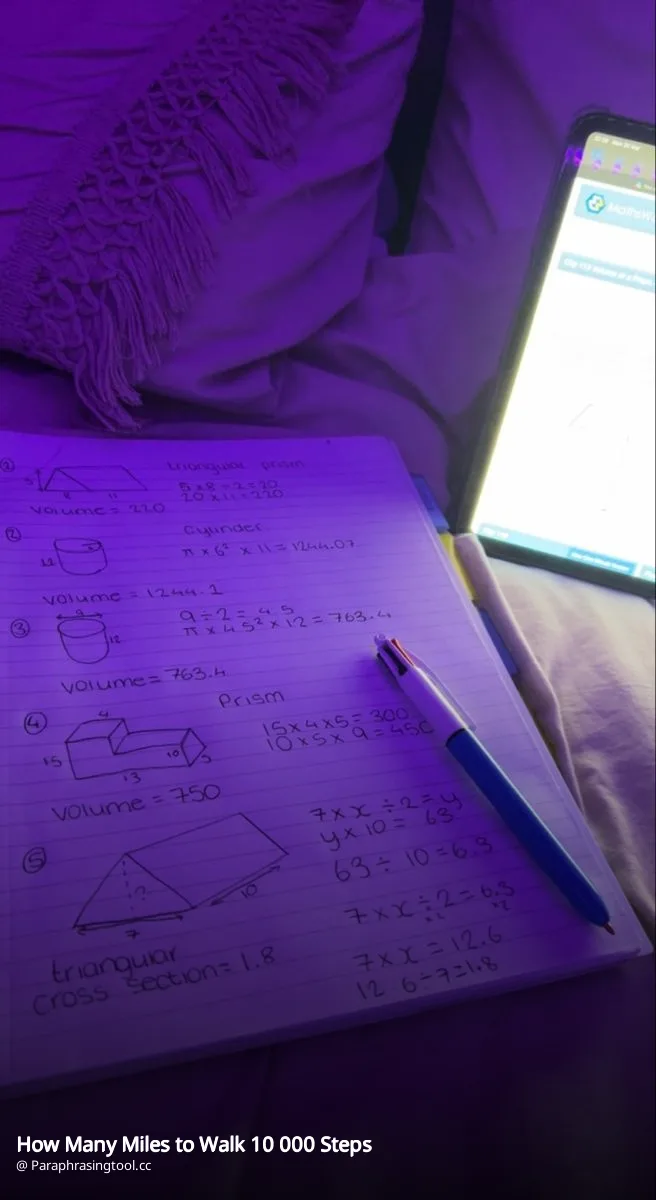 ① triangular prism
5 8 11
5 x 8 ÷ 2 = 20
20 x 11 = 220
Volume = 220
② Cylinder
11
π x 6² x 11 = 1244.07
Volume = 1244.1
③ 9 12
9 ÷ 2 = 4.5
π x 4.5² x 12 = 763.4
Volume = 763.4
④ Prism
4 15 10 5 13
15 x 4 x 5 = 300
10 x 5 x 9 = 450
Volume = 750
⑤ ? 10 7
7 x x ÷ 2 = y
y x 10 = 63
63 ÷ 10 = 6.3
7 x x ÷ 2 = 6.3
x2 x2
7 x x = 12.6
12.6 ÷ 7 = 1.8
triangular
cross section = 1.8
How Many Miles to Walk 10 000 Steps
@ Paraphrasingtool.cc